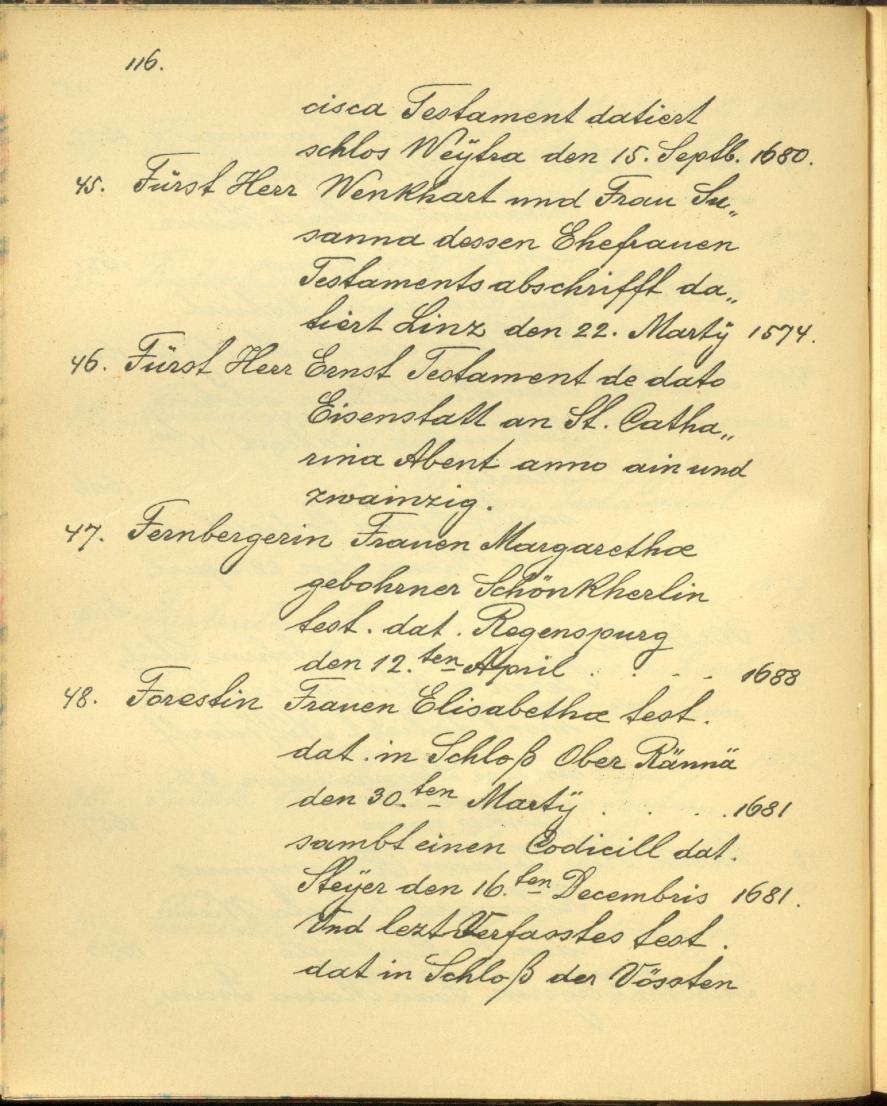 116.
cisca Testament datiert
schlos Weÿtra den 15. Septb. 1680.
45. Fürst Herr Wenkhart und Frau Su„
sanna dessen Ehefrauen
Testamentsabschrifft da„
tiert Linz den 22. Martÿ 1574.
46. Fürst Herr Ernst Testament de dato
Eisenstatt an St. Catha„
rina Abent anno ain und
zwainzig.
47. Fernbergerin Frauen Margarethæ
gebohrner Schönkherlin
test. dat. Regenspurg
den 12.ten April . . . . 1688
48. Forestin Frauen Elisabethæ test.
dat. in Schloß Ober Rännä
den 30.ten Martÿ . . . . 1681
sambt einen Codicill dat.
Steÿer den 16.ten Decembris 1681.
Und lezt Verfasstes test.
dat in Schloß der Vössten